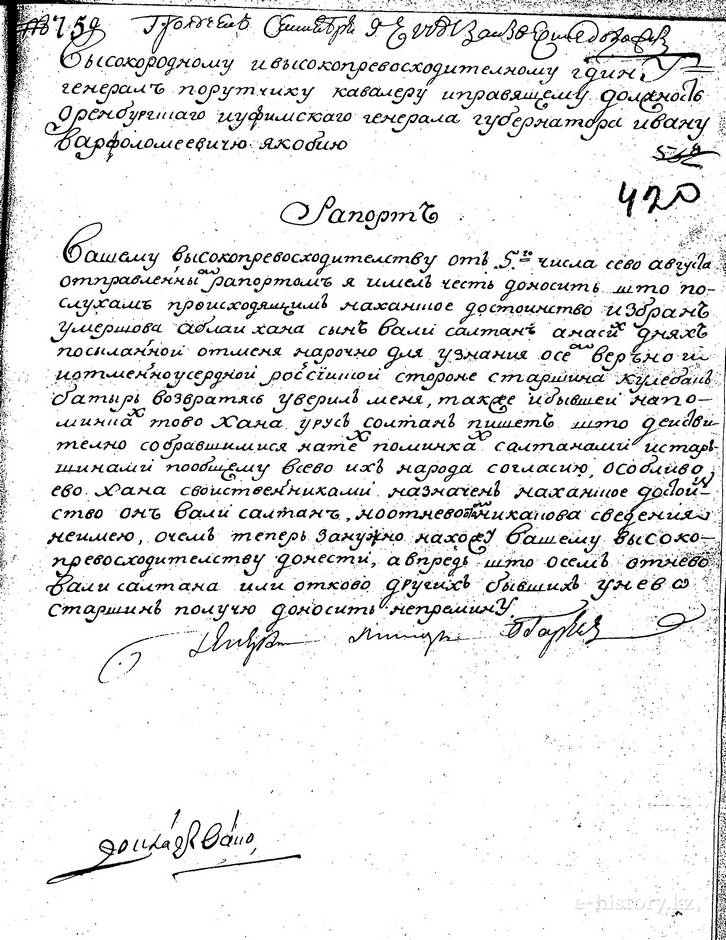 № 759
Высокородному ивысокопревосходителному гдину
генералъ порутчику кавалеру иправящему должность
оренбургшаго иуфимскаго генерала губернатора ивану
варфоломеевичю якобию
420
Рапортъ
Вашему высокопревосходительству отъ 5го числа сево августа
отправленны рапортомъ я имелъ честь доносить што по-
слухамъ происходящимъ наханшое достоинство избранъ
умершова аблаи хана сынъ вали салтанъ анасихъ дняхъ
посыланной отменя нарочно для узнания осемъ верьно и
иотменноусердной россiишой стороне старшина кулебакъ
батырь возвратясь уверилъ меня, также ибывшей напо-
минкахъ тово хана урусъ солтанъ пишетъ што деиdви-
телно собравшимися натехъ поминкахъ салтанами истарь-
шинами пообщему всево ихъ народа согласию, особливо
ево хана свойственниками назначенъ наханшое достой-
ство онъ вали салтанъ, ноотнево никакова сведения
неимею, очемъ теперь занужно нахожу вашему высоко-
превосходительству донести, авпредь што осемъ отнево
вали салтана или отково другихъ бывшихъ унево
старшинъ получю доносить непремину
e-history.kz